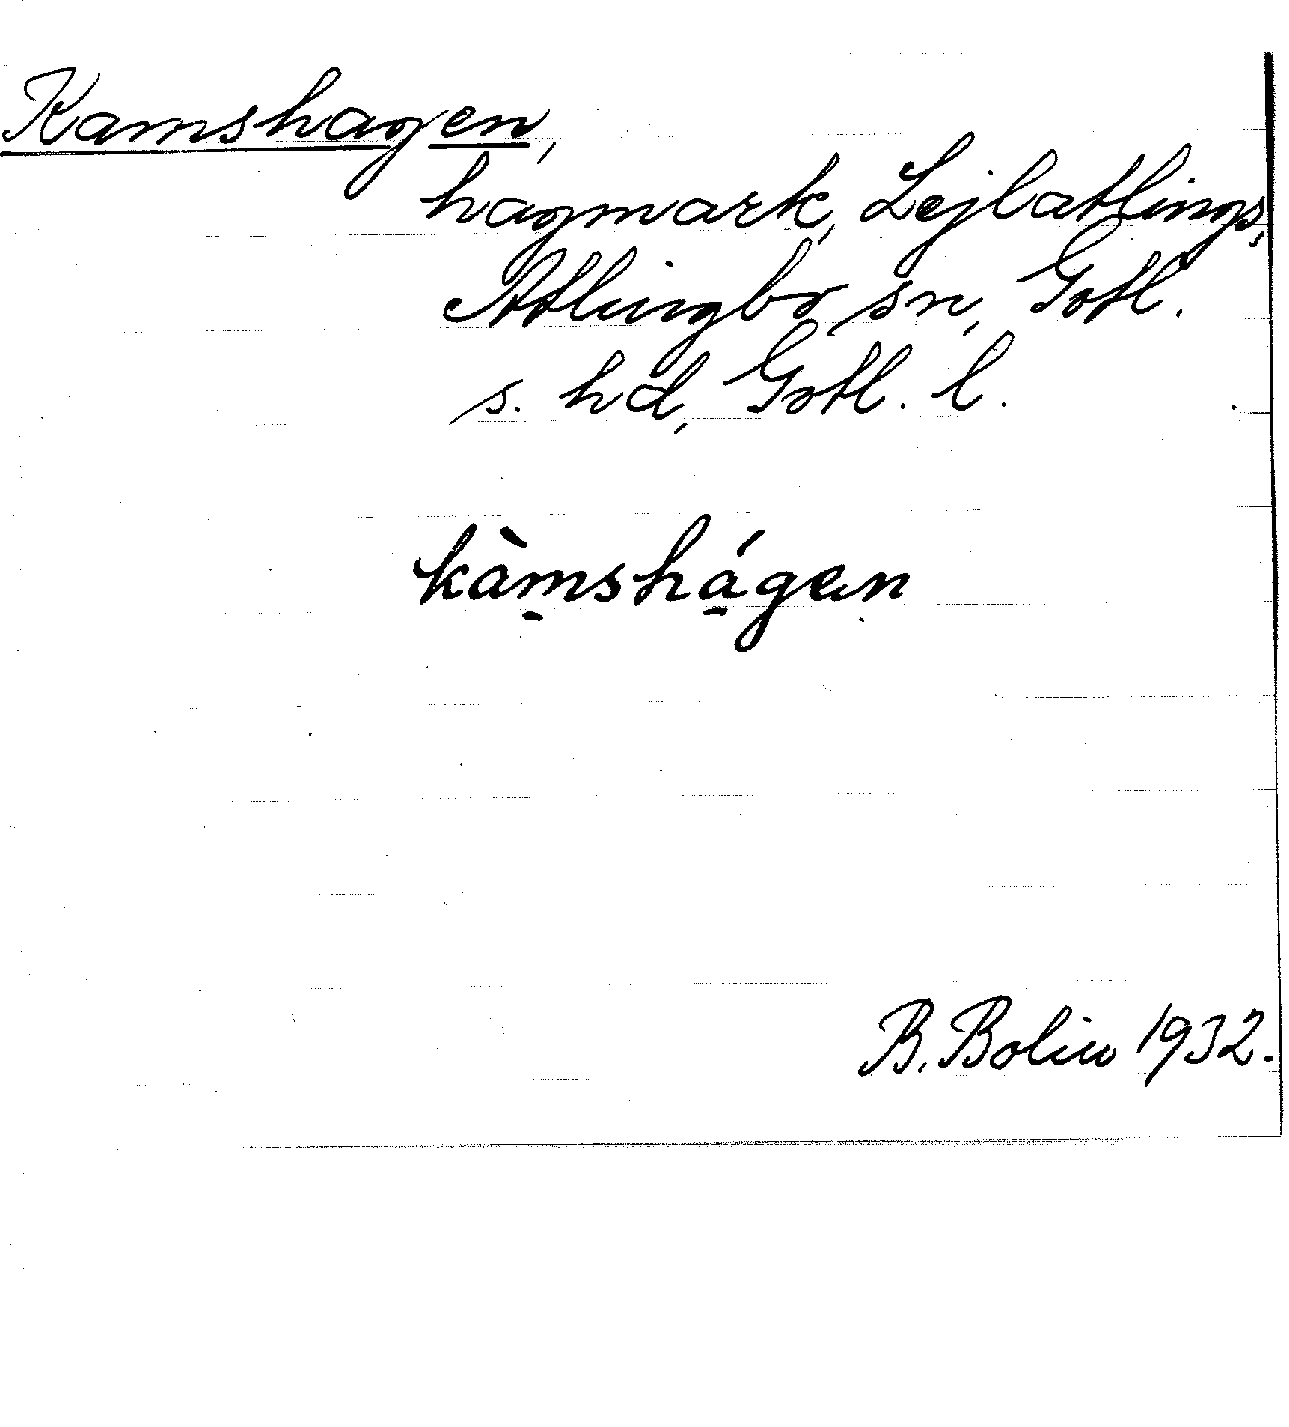 Kamshagen,
hagmark, Lejlatlings,
Atlingbo sn, Gotl.
s. hd, Gotl. l.
kàm̱shá̱gen
B. Bolin 1932.